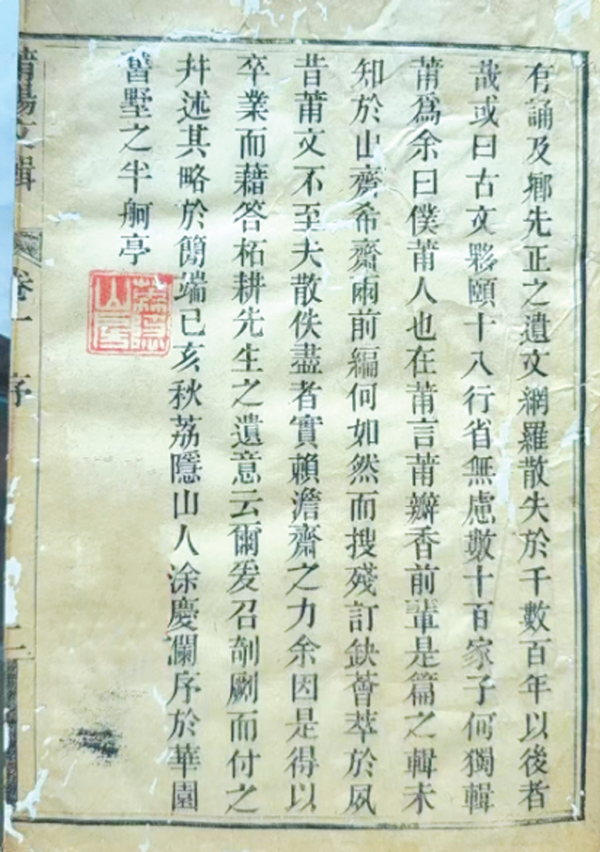 有誦及鄉先正之遺文網羅散失於千數百年以後者
哉或曰古文夥頤十八行省無慮數十百家子何獨輯
莆爲余曰僕莆人也在莆言莆瓣香前輩是篇之輯未
知於山齋希齋兩前編何如然而搜殘訂缺薈萃於夙
昔莆文不至夫散佚盡者實賴澹齋之力余因是得以
卒業而藉答柘耕先生之遺意云爾爰召剞劂而付之
幷述其略於簡端己亥秋荔隱山人涂慶瀾序於華園
舊墅之半舸亭
荔隱山房
莆陽文輯
卷一
序
二